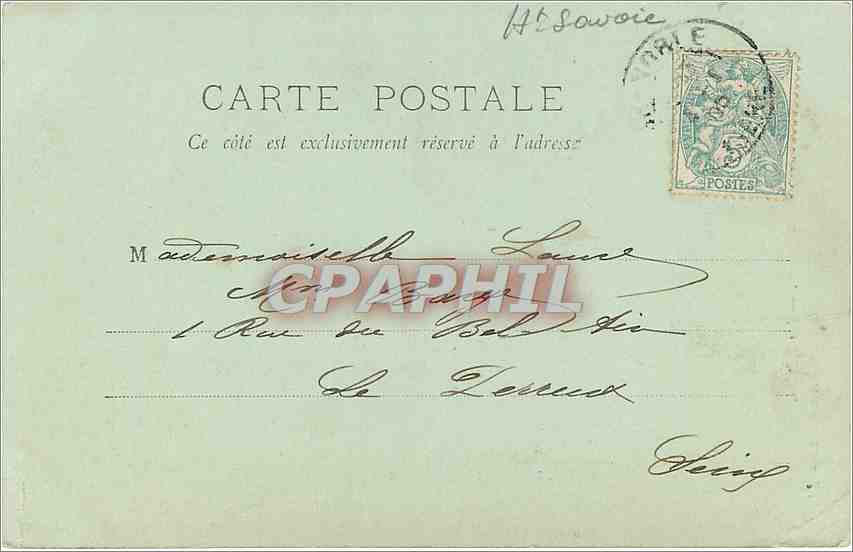 Hte Savoie
CARTE POSTALE
Ce côté est exclusivement réservé à l'adresse
POSTES
Mademoiselle
CPAPHIL
1 Rue du Bel Air
Le Perreux
Seine